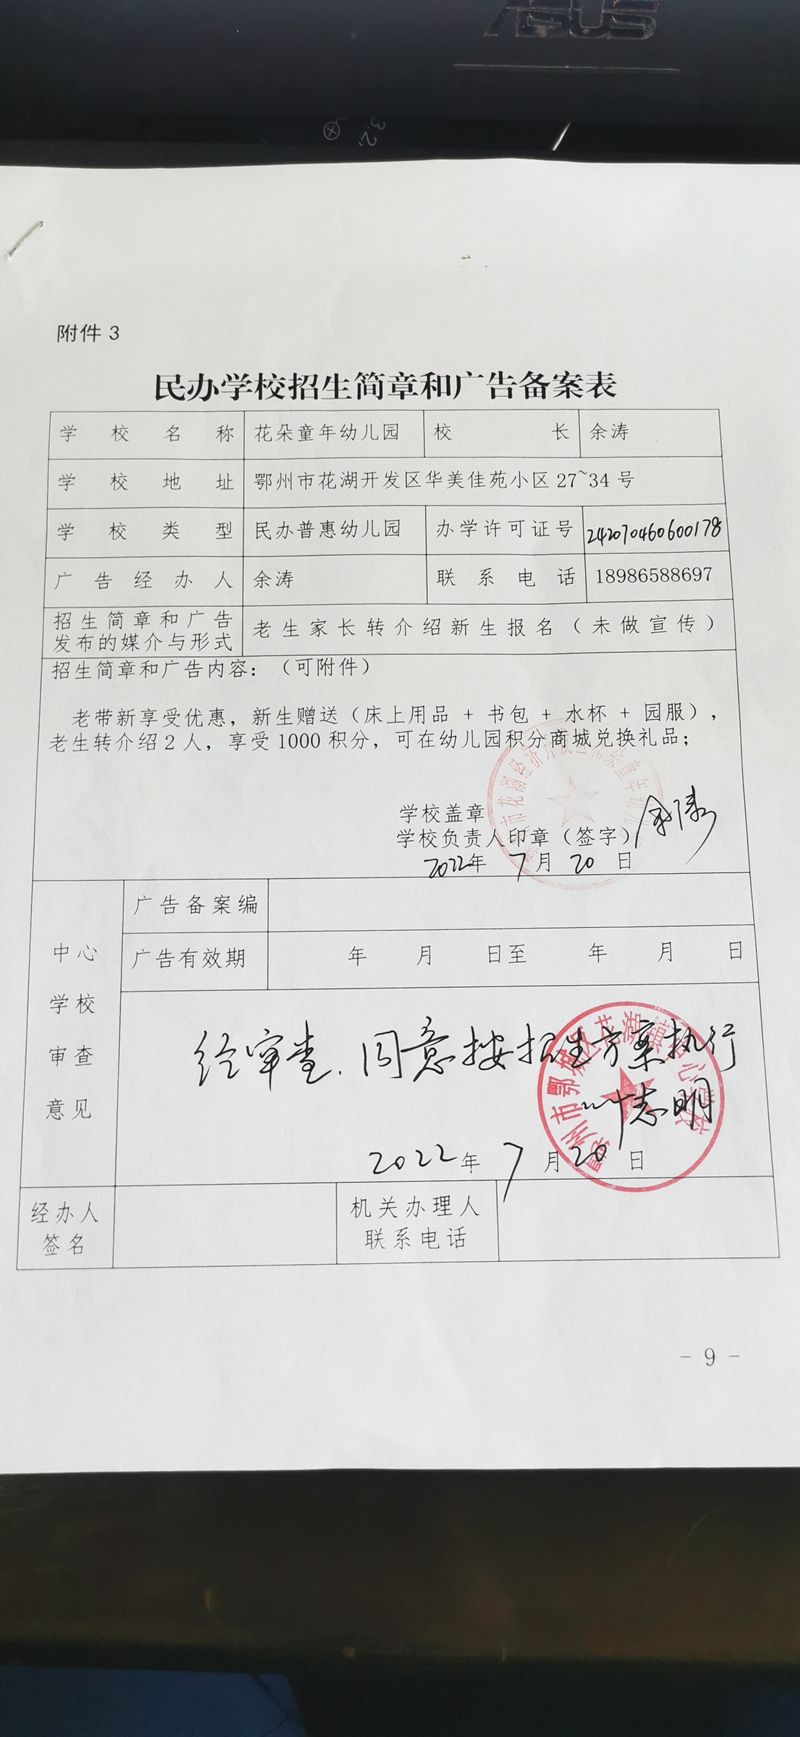 ASUS
附件 3
民办学校招生简章和广告备案表
学校名称 花朵童年幼儿园 校长 余涛
学校地址 鄂州市花湖开发区华美佳苑小区 27~34 号
学校类型 民办普惠幼儿园 办学许可证号 242070460600178
广告经办人 余涛 联系电话 18986588697
招生简章和广告
发布的媒介与形式 老生家长转介绍新生报名（未做宣传）
招生简章和广告内容：（可附件）
老带新享受优惠，新生赠送（床上用品 + 书包 + 水杯 + 园服），
老生转介绍 2 人，享受 1000 积分，可在幼儿园积分商城兑换礼品；
学校盖章
学校负责人印章（签字）余涛
2022年 7 月 20 日
中心
学校
审查
意见
广告备案编
广告有效期 年 月 日至 年 月 日
经审查，同意按招生方案执行
叶志明
2022 年 7 月 20 日
鄂州市鄂城区花湖镇中心学校
经办人
签名
机关办理人
联系电话
- 9 -